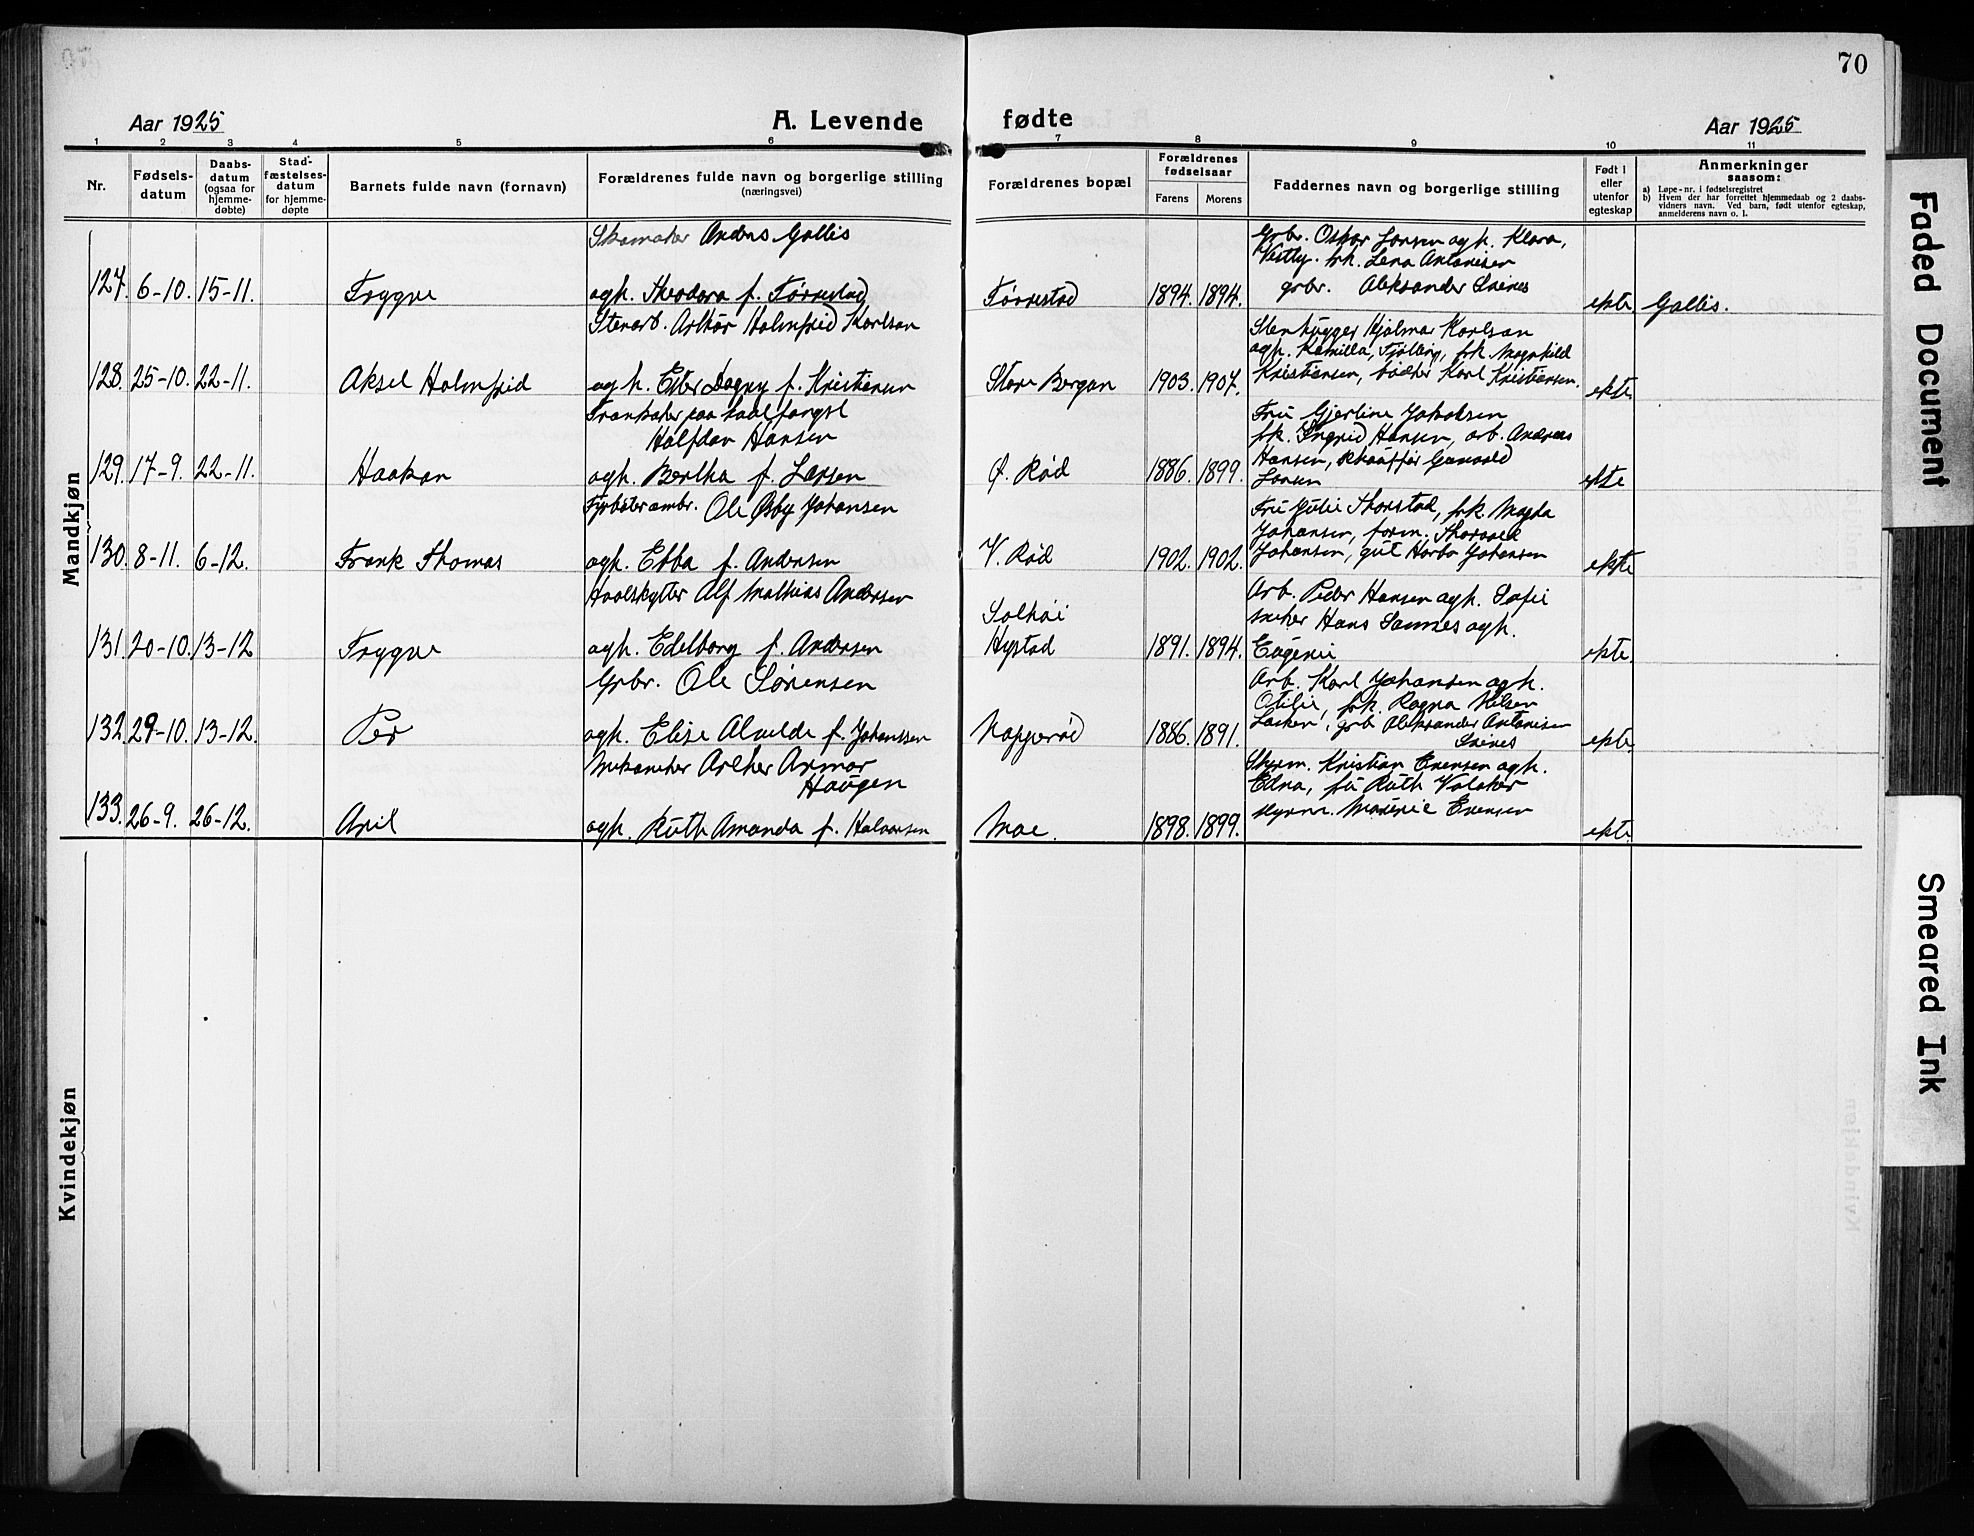 70
Aar 1925
A. Levende fødte
Aar 1925
1 2 3 4 5 6 7 8 9 10 11
Nr.
Fødsels-
datum
Daabs-
datum
(ogsaa for
hjemme-
døbte)
Stad-
fæstelses-
datum
for hjemme-
døpte
Barnets fulde navn (fornavn)
Forældrenes fulde navn og borgerlige stilling
(næringsvei)
Forældrenes bopæl
Forældrenes
fødselsaar
Farens Morens
Faddernes navn og borgerlige stilling
Født i
eller
utenfor
egteskap
Anmerkninger
saasom:
a) Løpe-nr. i fødselsregistret
b) Hvem der har forrettet hjemmedaab og 2 daabs-
vidners navn. Ved barn, født utenfor egteskap,
anmelderens navn o. l.
Mandkjøn
Skomaker Anders Gallis
127. 6-10. 15-11. Trygve
agh. Theodora f. Førrestad
Førrestad
1894. 1894.
Grbr. Oskar Larsen agh. Klara,
Vestby. frk. Lena Antonisen
grbr. Aleksander Sines
ekte. Gallis.
Stenarb. Arthur Holmfrid Karlson
128. 25-10. 22-11. Aksel Holmfrid
agh. Ester Dagny f. Kristiansen
Store Bergan
1903. 1907.
Stenhugger Hjalmar Karlson
agh. Kamilla, Tjølling, frk. Magnhild
Kristiansen, bødker Karl Kristiansen.
ekte.
Trankoker paa hvalfangst
Halfdan Hansen
129. 17-9. 22-11. Haakon
agh. Bertha f. Larsen
Ø. Rød
1886. 1899.
Fru Gjerline Jakobsen
frk. Ingrid Hansen, arb. Andreas
Hansen, chauffør Gunvald
Larsen
ekte
Fyrbøterambr. Ole Øsby Johansen
130. 8-11. 6-12. Frank Thomas
agh. Ebba f. Andersen
V. Rød
1902. 1902.
Fru Julie Thorstad, frk. Magda
Johansen, form. Thorvald
Johansen, gut Harbo Johansen
ekte
Hvalskytter Alf Mathias Andersen
131. 20-10. 13-12 Trygve
agh. Edelborg f. Andersen
Solhøi
Hystad
1891. 1894.
Arb. Peder Hansen agh. Sofie
sneker Hans Sannes agh.
Eugenie
ekte.
Grbr. Ole Sørensen
132. 29-10. 13-12. Per
agh. Elise Alvilde f. Johanssen
Kopperød
1886. 1891.
Arb. Karl Johansen agh.
Otilie, frk. Ragna Nilsen
grb. Aleksander Antonisen
Sines
ekte.
Mekaniker Arther Armor
Haugen
133. 26-9. 26-12. Aril
agh. Ruth Amanda f. Halvorsen
Moe.
1898. 1899.
Skrm. Kristian Evensen agh.
Edna, fru Ruth
styrm. Evensen
ekte.
Kvindekjøn
Faded Document
Smeared Ink